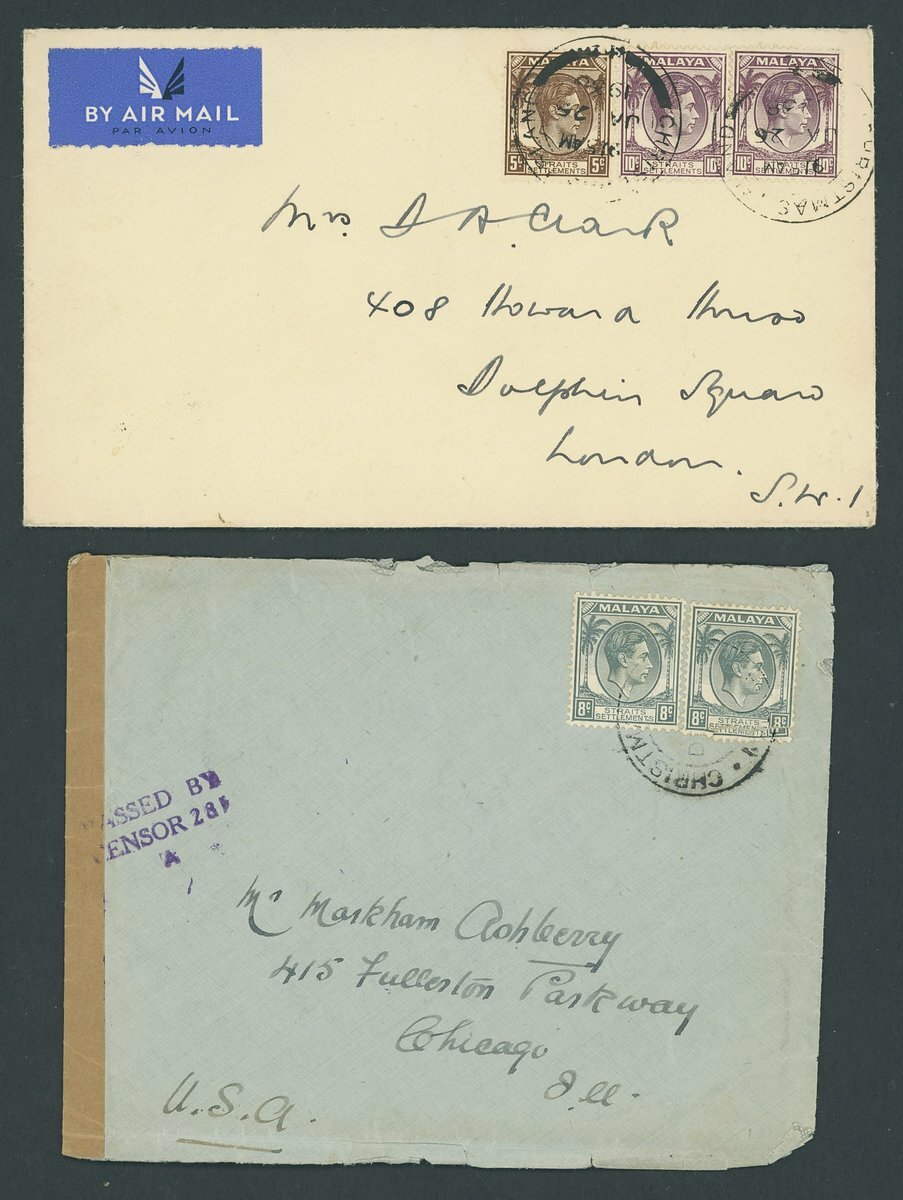 BY AIR MAIL
PAR AVION
MALAYA
5c 5c
STRAITS SETTLEMENTS
MALAYA
10c 10c
STRAITS SETTLEMENTS
MALAYA
10c
STRAITS SETTLEMENTS
CHRISTMAS
JA
26
Mrs. D A. Clark
408 Howard House
Dolphin Square
London.
S.W.1
MALAYA
8c 8c
STRAITS SETTLEMENTS
MALAYA
8c 8c
STRAITS SETTLEMENTS
CHRISTM
PASSED BY
CENSOR 281
A
Mr Markham Ashberry
415 Fullerton Parkway
Chicago
Ill.
U.S.A.